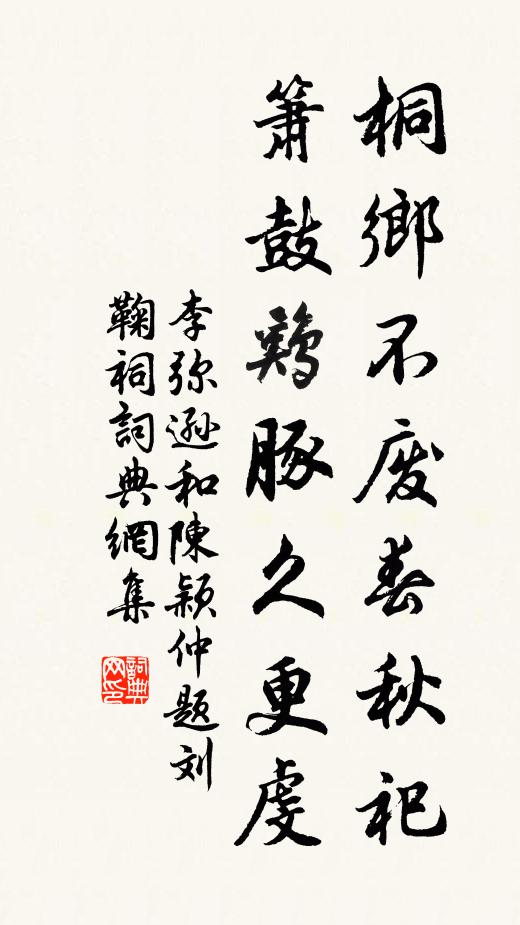 桐鄉不废春秋祀
簫鼓鷄豚久更虔
李弥逊和陳颖仲题刘
鞠祠詞典網集
詞典网印